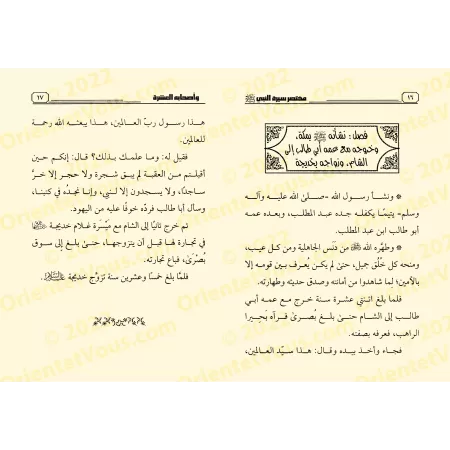 ١٦
مختصر سيرة النبي ﷺ
فصل: نشأته ﷺ بمكة،
وخروجه مع عمه أبي طالب إلى
الشام، وزواجه بخديجة
* ونشأ رسول الله -صلى الله عليه وآله
وسلم- يتيمًا يكفله جده عبد المطلب، وبعده عمه
أبو طالب ابن عبد المطلب.
* وطهَّره الله ﷺ من دَنَس الجاهلية ومن كل عيب،
ومنحه كل خُلُق جميل، حتى لم يكن يُعرف بين قومه إلا
بالأمين؛ لِما شاهدوا من أمانته وصدق حديثه وطهارته.
فلما بلغ اثنتي عشرة سنة خرج مع عمه أبي
طالب إلى الشام حتىٰ بلغ بُصرىٰ فرآه بَحِيرا
الراهب، فعرفه بصفته.
فجاء وأخذ بيده وقال: هذا سيّد العالمين،
وأصحابه العشرة
١٧
هذا رسول ربّ العالمين، هذا يبعثه الله رحمة
للعالمين.
فقيل له: وما علمك بذلك؟ قال: إنكم حين
أقبلتم من العقبة لم يبق شجرة ولا حجر إلا خرَّ
ساجدًا، ولا يسجدون إلا لنبي، وإنا نجدُه في كتبنا،
وسأل أبا طالب فردّه خوفًا عليه من اليهود.
ثم خرج ثانيًا إلى الشام مع مَيْسَرة غلام خديجة
في تجارة لها قبل أن يتزوجها، حتىٰ بلغ إلى سوق
بُصْرىٰ، فباع تجارته.
فلمَّا بلغ خمسًا وعشرين سنة تزوَّج خديجة
OrientatVous.com © 2022